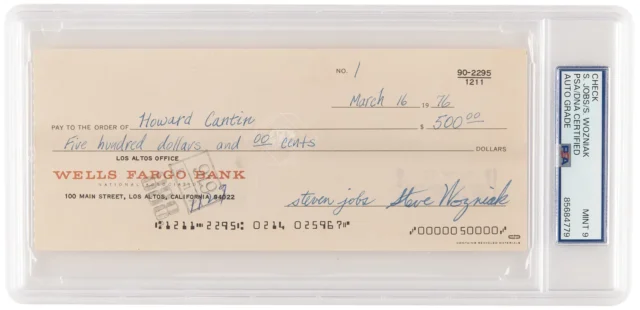 NO. 1
90-2295
1211
March 16 1976
PAY TO THE ORDER OF Howard Cantin $ 500.00
Five hundred dollars and 00 cents DOLLARS
LOS ALTOS OFFICE
WELLS FARGO BANK
NATIONAL ASSOCIATION
100 MAIN STREET, LOS ALTOS, CALIFORNIA 94022
steven jobs Steve Wozniak
1211 2295 0214 025967 0000050000
CHECK
S. JOBS/S. WOZNIAK
PSA/DNA CERTIFIED
AUTO GRADE
PSA
MINT 9
85684779